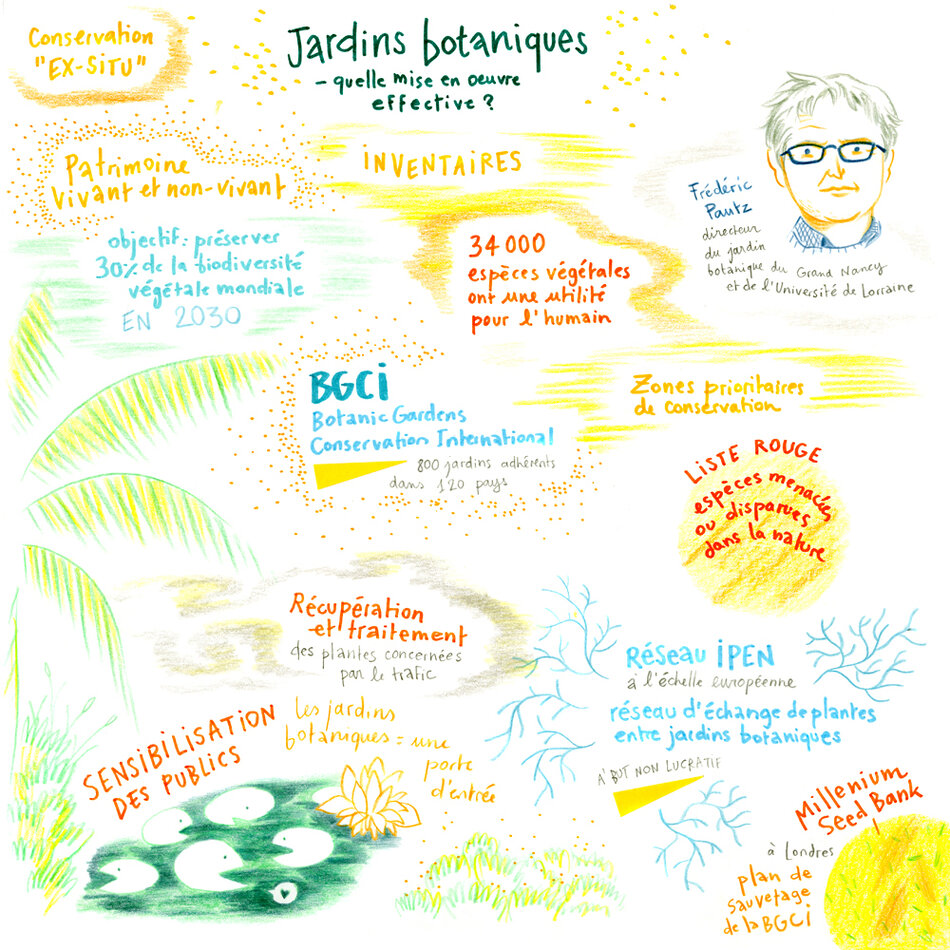 Conservation
"EX-SITU"
Jardins botaniques
- quelle mise en oeuvre
effective ?
Patrimoine
vivant et non-vivant
INVENTAIRES
Frédéric
Pautz
directeur
du jardin
botanique du Grand Nancy
et de l'Université de Lorraine
objectif : préserver
30% de la biodiversité
végétale mondiale
EN 2030
34 000
espèces végétales
ont une utilité
pour l'humain
BGCi
Botanic Gardens
Conservation International
800 jardins adhérents
dans 120 pays
Zones prioritaires
de conservation
LISTE ROUGE
espèces menacées
ou disparues
dans la nature
Récupération
et traitement
des plantes concernées
par le trafic
Réseau iPEN
à l'échelle européenne
réseau d'échange de plantes
entre jardins botaniques
A' BUT NON LUCRATIF
SENSIBILISATION
DES PUBLICS
les jardins
botaniques = une
porte
d'entrée
Millenium
Seed Bank
à Londres
plan de
sauvetage
de la BGCi